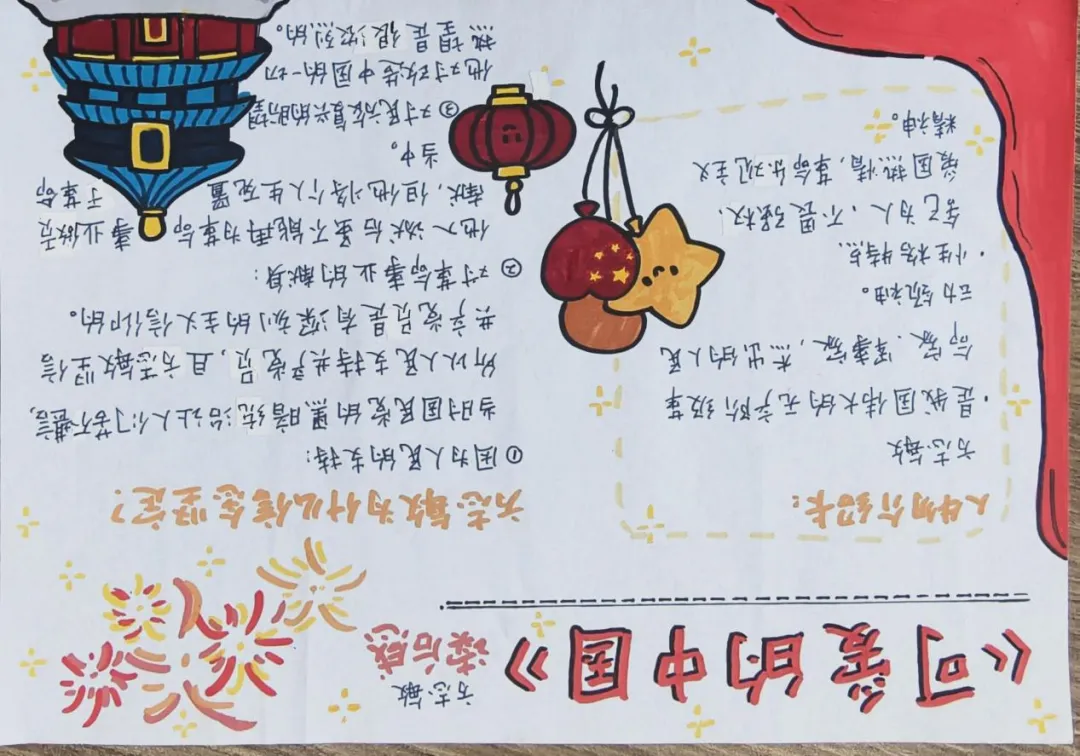 《可爱的中国》
方志敏
读后感
人物介绍卡:
方志敏
·是我国伟大的无产阶级革
命家、军事家,杰出的人民
动领袖。
·性格特点
舍己为人、不畏强权、
爱国热情,革命乐观主义
精神。
方志敏为什么信念坚定?
①因为人民的支持:
当时国民党的黑暗统治让人们苦不堪言,
所以人民支持共产党员,且方志敏坚信
共产党员是有深刻的主义信仰的。
②对革命事业的献身:
他入狱后虽不能再为革命事业做贡
献,但他将个人生死置于革命
当中。
③对民族复兴的盼望
他对改造中国的一切
热望是很浓烈的。